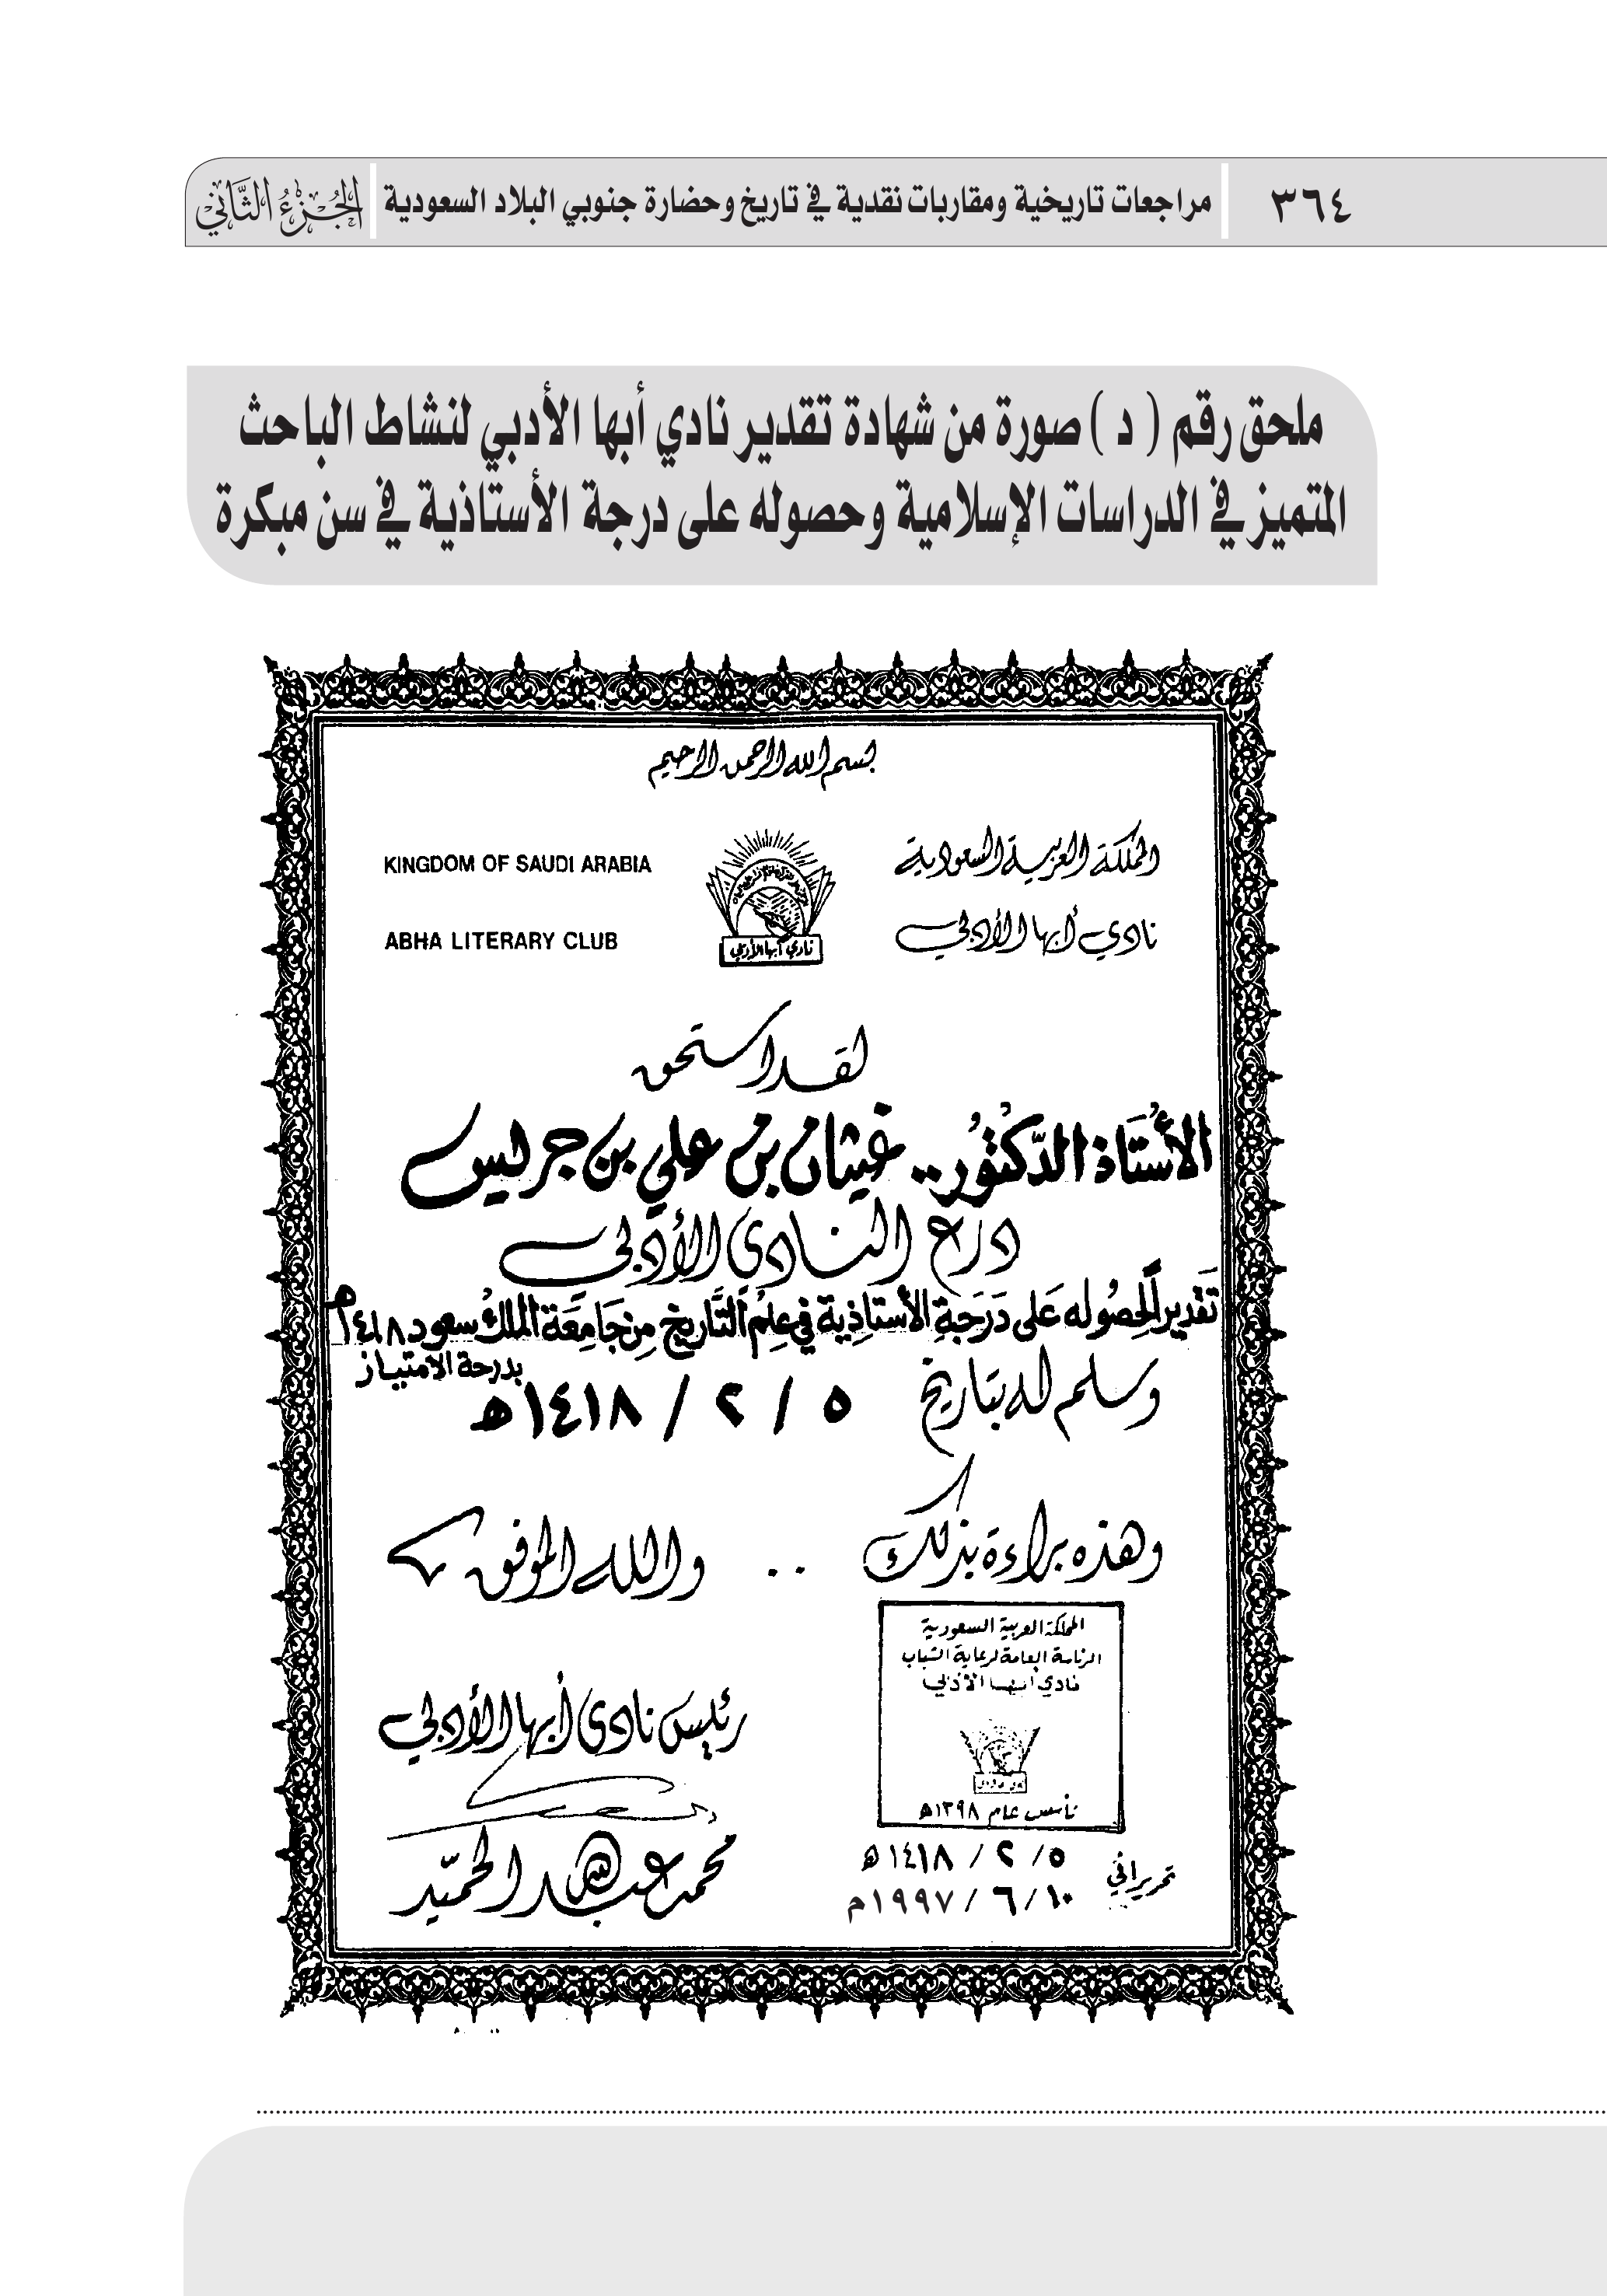 ٣٦٤
مراجعات تاريخية ومقاربات نقدية في تاريخ وحضارة جنوبي البلاد السعودية
الجُزءُ الثَّاني
ملحق رقم ( د ) صورة من شهادة تقدير نادي أبها الأدبي لنشاط الباحث
المتميز في الدراسات الإسلامية وحصوله على درجة الأستاذية في سن مبكرة
بسم الله الرحمن الرحيم
المملكة العربية السعودية
KINGDOM OF SAUDI ARABIA
نادي أبها الأدبي
ABHA LITERARY CLUB
نادي أبها الأدبي
لقد استحق
الأُستَاذ الدّكتُور.. غيثان بن علي بن جريس
درع النادي الأدبي
تَقديراً لحصُوله عَلى دَرَجَةِ الأستاذِية في عِلم التَّاريخ مِن جَامِعَة الملك سعود ١٤١٨هـ
بدرجة الامتياز
وسلم له بتاريخ ٥ / ٢ / ١٤١٨هـ
وهذه براءة بذلك .. والله الموفق
المملكة العربية السعودية
الرئاسة العامة لرعاية الشباب
نادي أبها الأدبي
تأسس عام ١٣٩٨هـ
رئيس نادي أبها الأدبي
محمد عبد الله الحميّد
تحريراً في ٥ / ٢ / ١٤١٨هـ
١٠ / ٦ / ١٩٩٧م